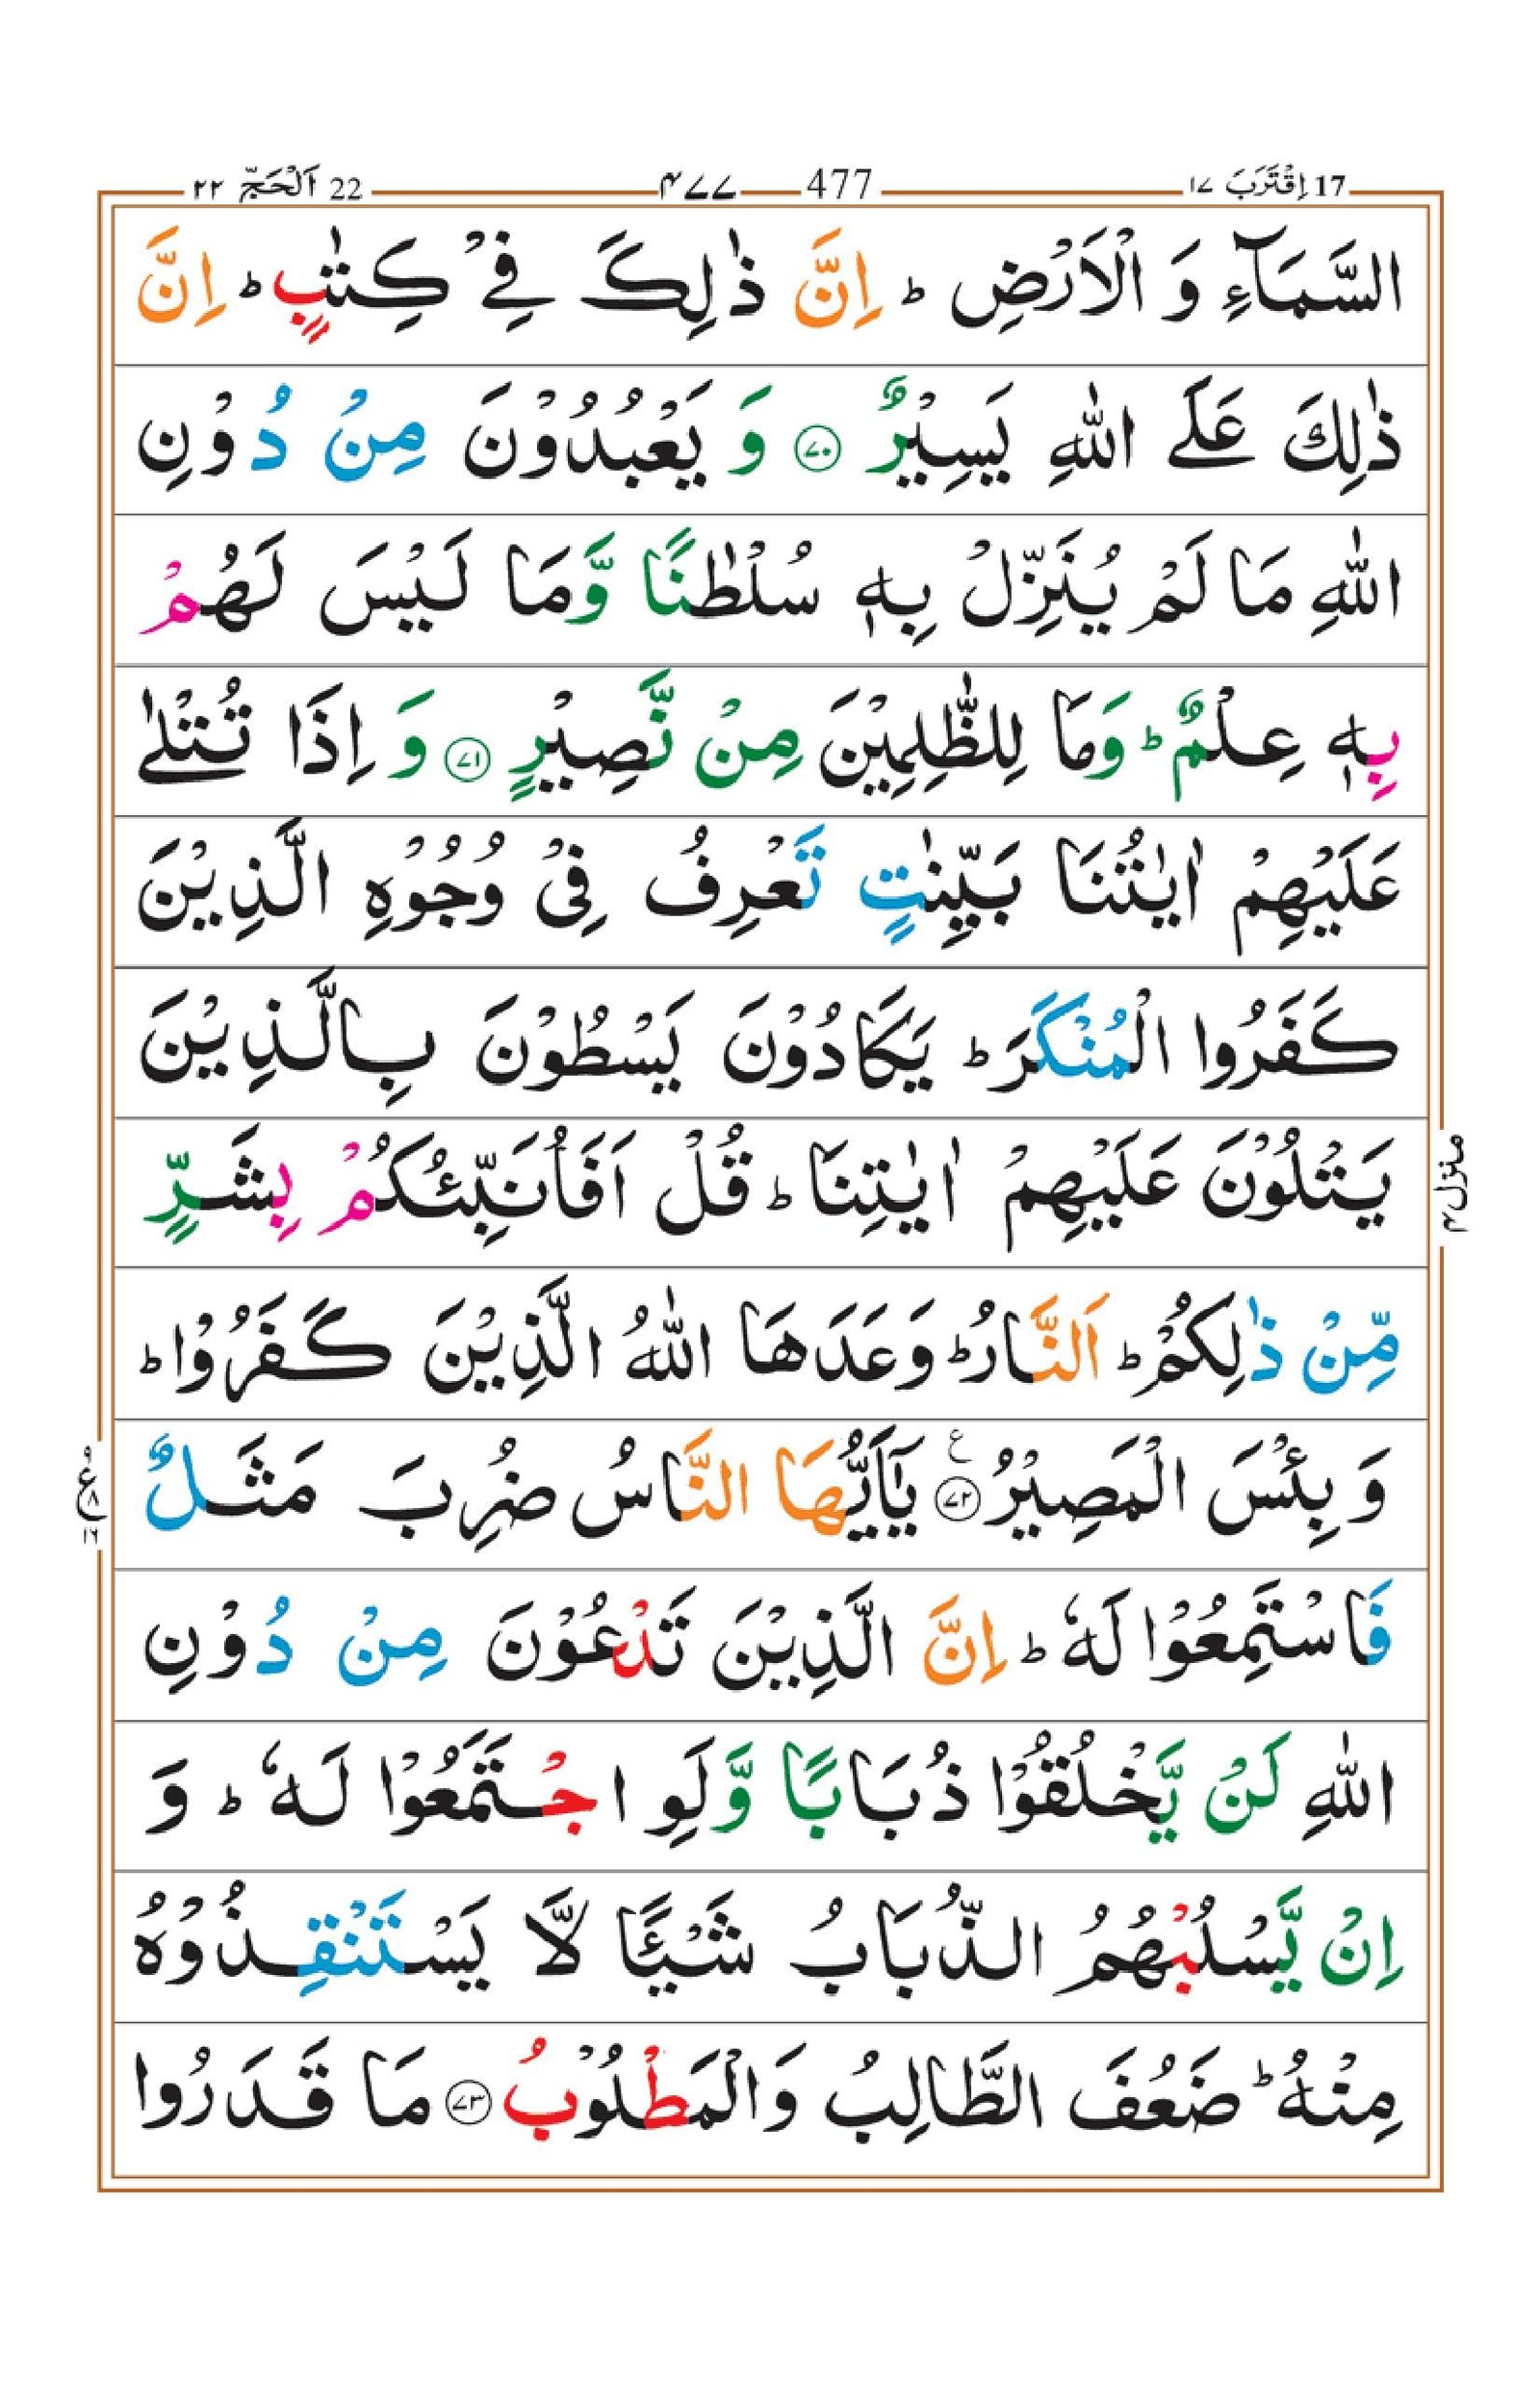 17 اِقْتَرَبَ ١٧ 477 ۴۷۷ 22 اَلْحَجّ ٢٢
السَّمَآءِ وَ الْاَرْضِ ؕ اِنَّ ذٰلِكَ فِیْ كِتٰبٍ ؕ اِنَّ
ذٰلِكَ عَلَی اللّٰهِ یَسِیْرٌ ﴿۷۰﴾ وَ یَعْبُدُوْنَ مِنْ دُوْنِ
اللّٰهِ مَا لَمْ یُنَزِّلْ بِهٖ سُلْطٰنًا وَّمَا لَیْسَ لَهُمْ
بِهٖ عِلْمٌ ؕ وَمَا لِلظّٰلِمِیْنَ مِنْ نَّصِیْرٍ ﴿۷۱﴾ وَ اِذَا تُتْلٰی
عَلَیْهِمْ اٰیٰتُنَا بَیِّنٰتٍ تَعْرِفُ فِیْ وُجُوْهِ الَّذِیْنَ
كَفَرُوا الْمُنْكَرَ ؕ یَكَادُوْنَ یَسْطُوْنَ بِالَّذِیْنَ
یَتْلُوْنَ عَلَیْهِمْ اٰیٰتِنَا ؕ قُلْ اَفَاُنَبِّئُكُمْ بِشَرٍّ
مِّنْ ذٰلِكُمْ ؕ اَلنَّارُ ؕ وَعَدَهَا اللّٰهُ الَّذِیْنَ كَفَرُوْا ؕ
وَ بِئْسَ الْمَصِیْرُ ﴿۷۲﴾ ع یٰۤاَیُّهَا النَّاسُ ضُرِبَ مَثَلٌ
فَاسْتَمِعُوْا لَهٗ ؕ اِنَّ الَّذِیْنَ تَدْعُوْنَ مِنْ دُوْنِ
اللّٰهِ لَنْ یَّخْلُقُوْا ذُبَابًا وَّلَوِ اجْتَمَعُوْا لَهٗ ؕ وَ
اِنْ یَّسْلُبْهُمُ الذُّبَابُ شَیْـًٔا لَّا یَسْتَنْقِذُوْهُ
مِنْهُ ؕ ضَعُفَ الطَّالِبُ وَالْمَطْلُوْبُ ﴿۷۳﴾ مَا قَدَرُوا
منزل۴